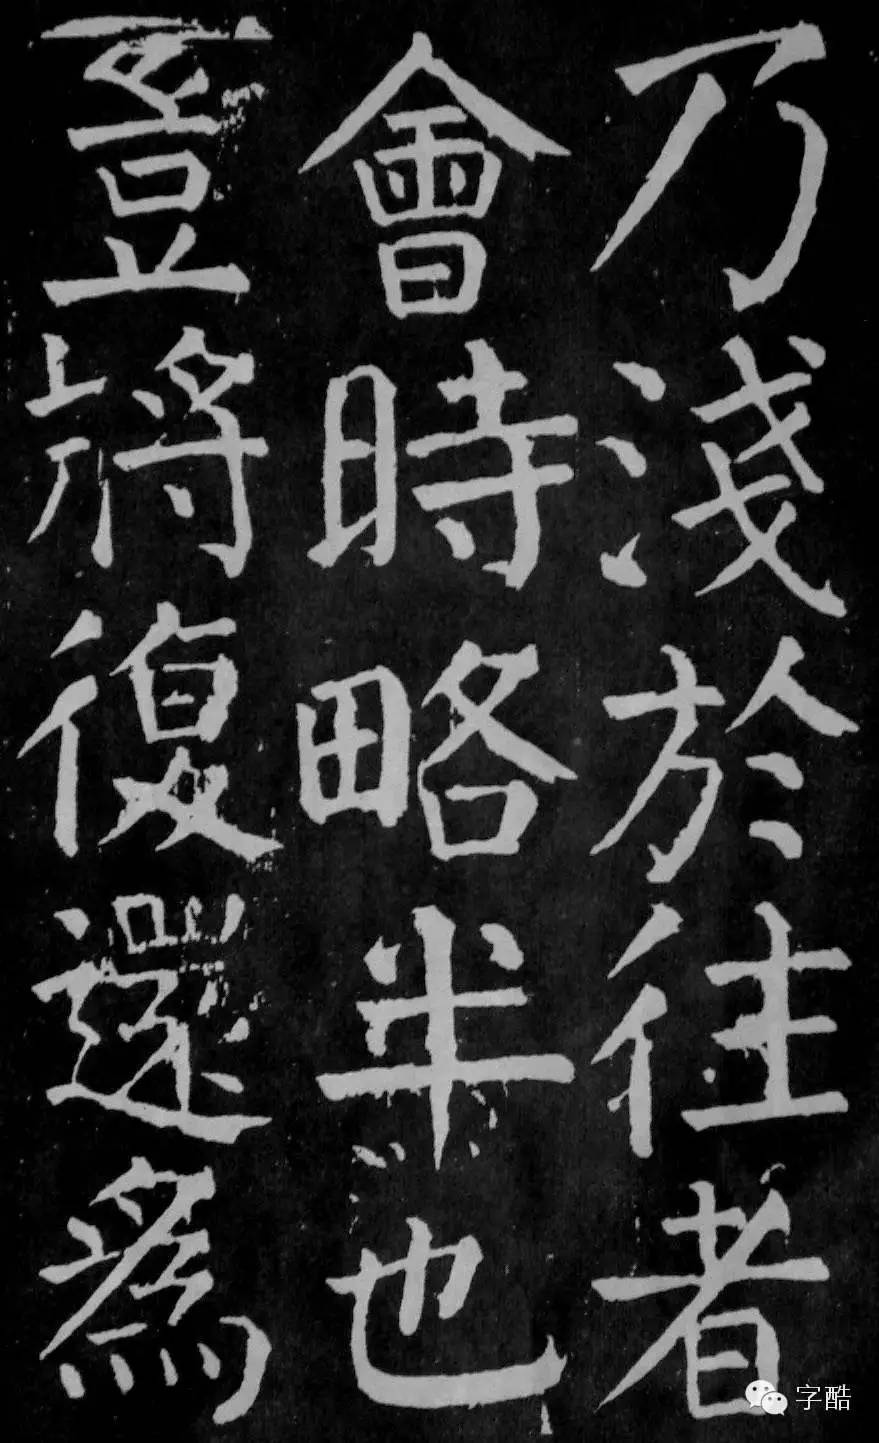 乃淺於往者
會時略半也
豈將復還為
字酷